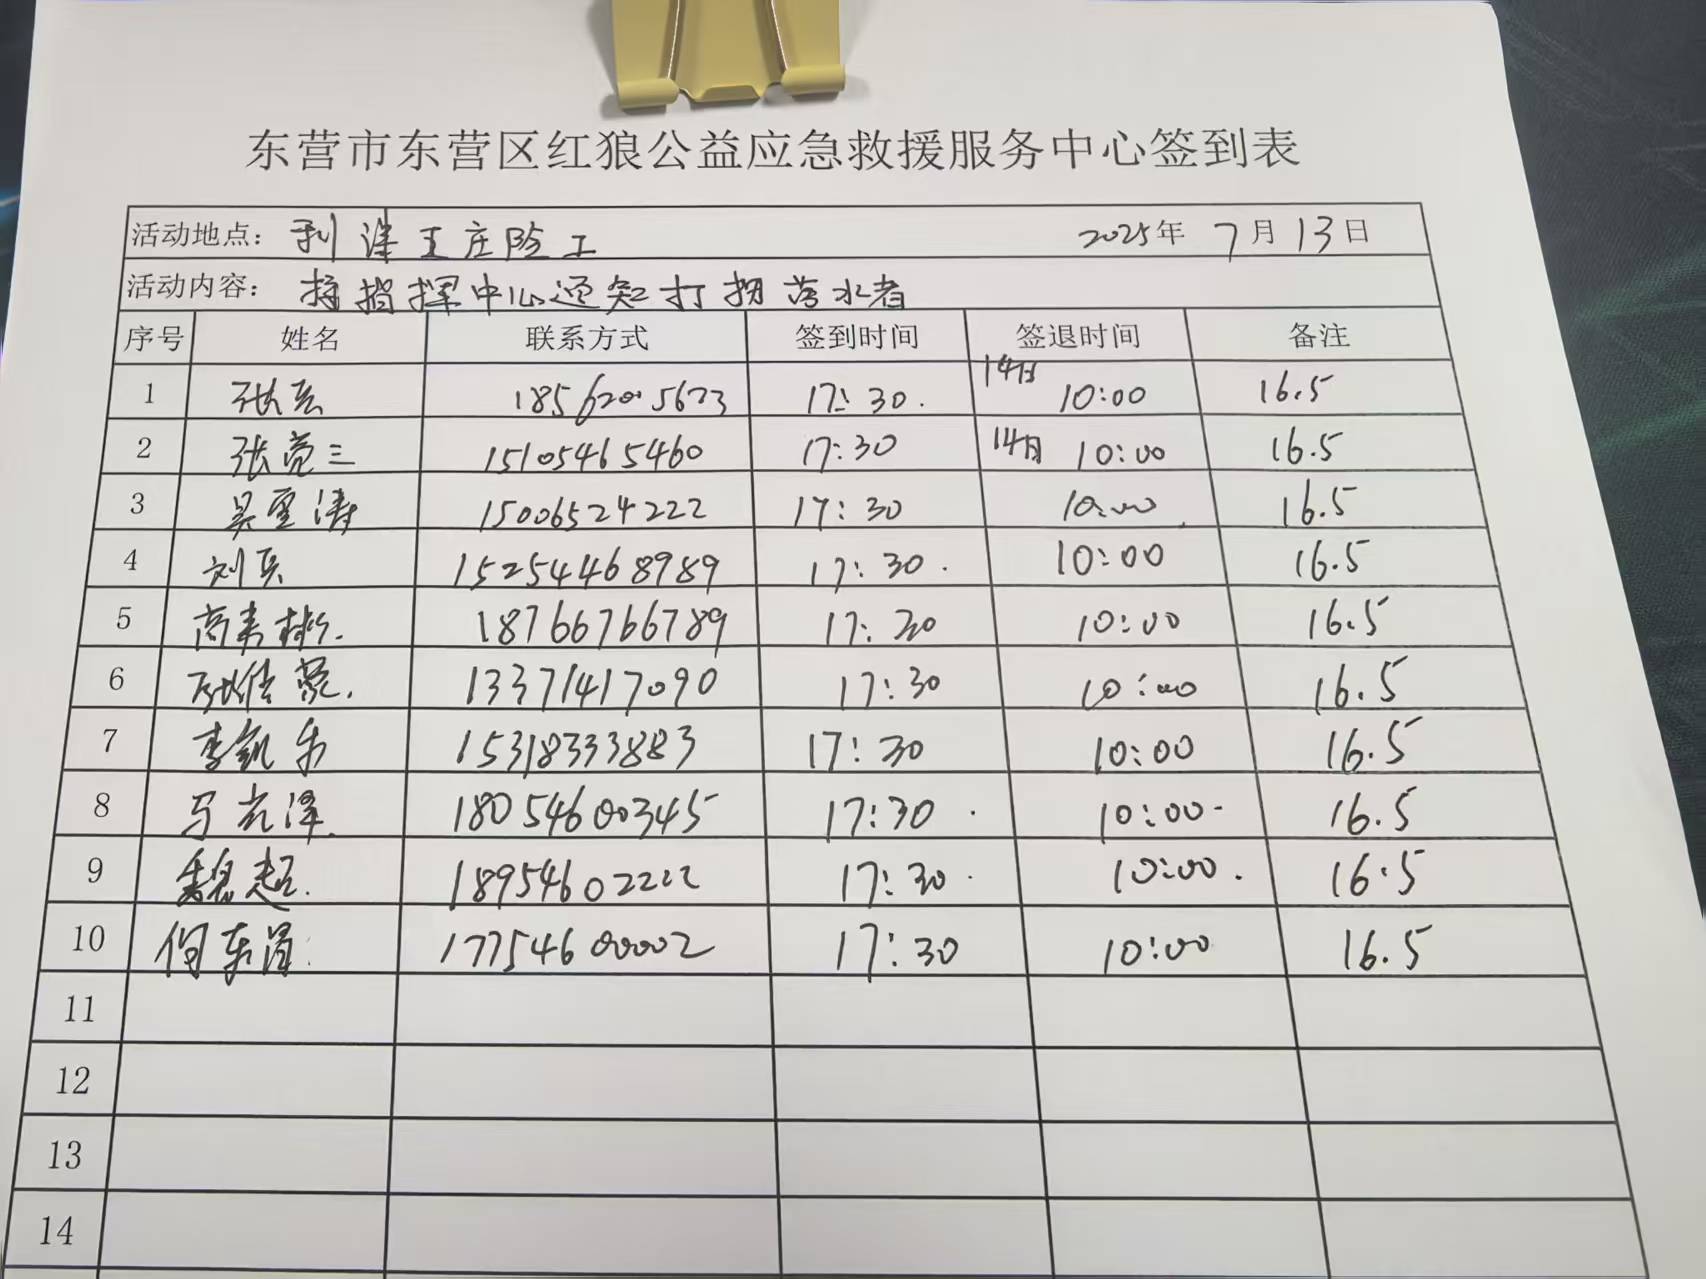 东营市东营区红狼公益应急救援服务中心签到表
活动地点：利津王庄险工 2025年 7月13日
活动内容：接指挥中心通知打捞落水者
序号 姓名 联系方式 签到时间 签退时间 备注
1 18562005673 17:30. 14日 10:00 16.5
2 张亮三 15105465460 17:30 14日 10:00 16.5
3 15006524222 17:30 10:00 16.5
4 刘兵 15254468989 17:30. 10:00 16.5
5 18766766789 17:30 10:00 16.5
6 13371417090 17:30 10:00 16.5
7 李凯乐 15318333883 17:30 10:00 16.5
8 马光泽 18054600345 17:30. 10:00 16.5
9 魏超. 18954602222 17:30. 10:00. 16.5
10 17754600002 17:30 10:00 16.5
11
12
13
14